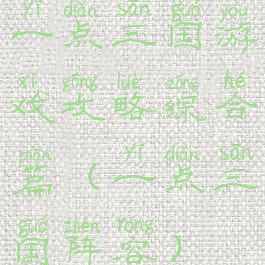 yī diǎn sān guó yóu
一点三国游
xì gōng lüè zōng hé
戏攻略综合
piān yī diǎn sān
篇(一点三
guó zhèn róng
国阵容)